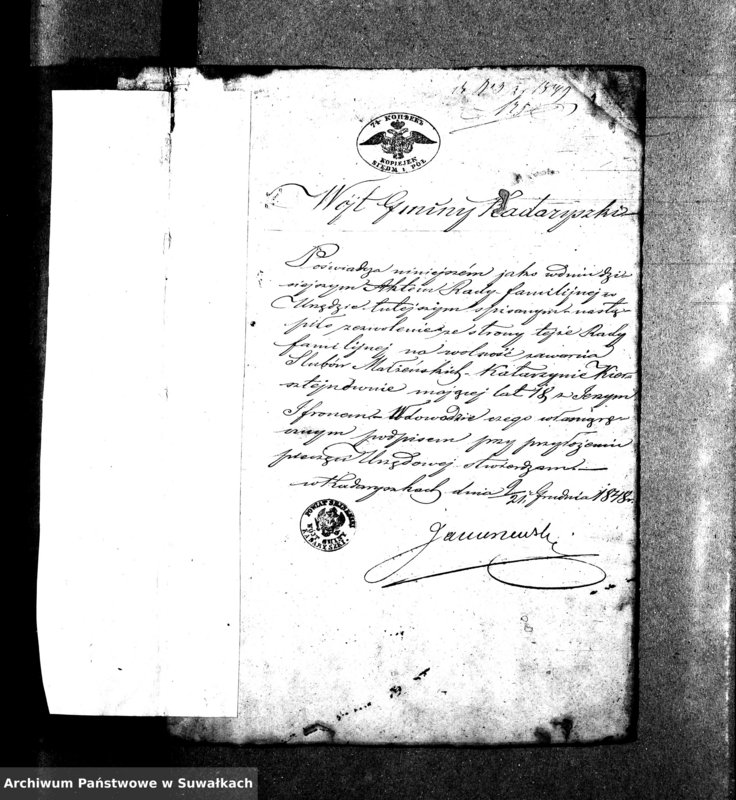 7½ КОПѢЕКЪ
KOPIEJEK
SIEDM I PÓŁ
Wójt Gminy Kadaryszki
Poświadza niniejszém jako wdniu dzi
siejszym Aktem Rady familijnej w
Urzędzie tutejszym spisanym nastą
piło zezwolenie ze strony tejże Rady
familijnej na wolność zawarcia
Slubów Małżeńskich Katarzynie Kier
sztejnównie mającej lat 18 z Jerzym
Ifronem Wdowodzie czego własnorę
cznym podpisem przy przyłożeniu
pieczęci Urzędowej stwierdzam
w Kadaryszkach dnia 9/21 Grudnia 1878 r.
POWIAT SEJNEŃSKI
WÓJT GMINY
KADARYSZKI
Archiwum Państwowe w Suwałkach